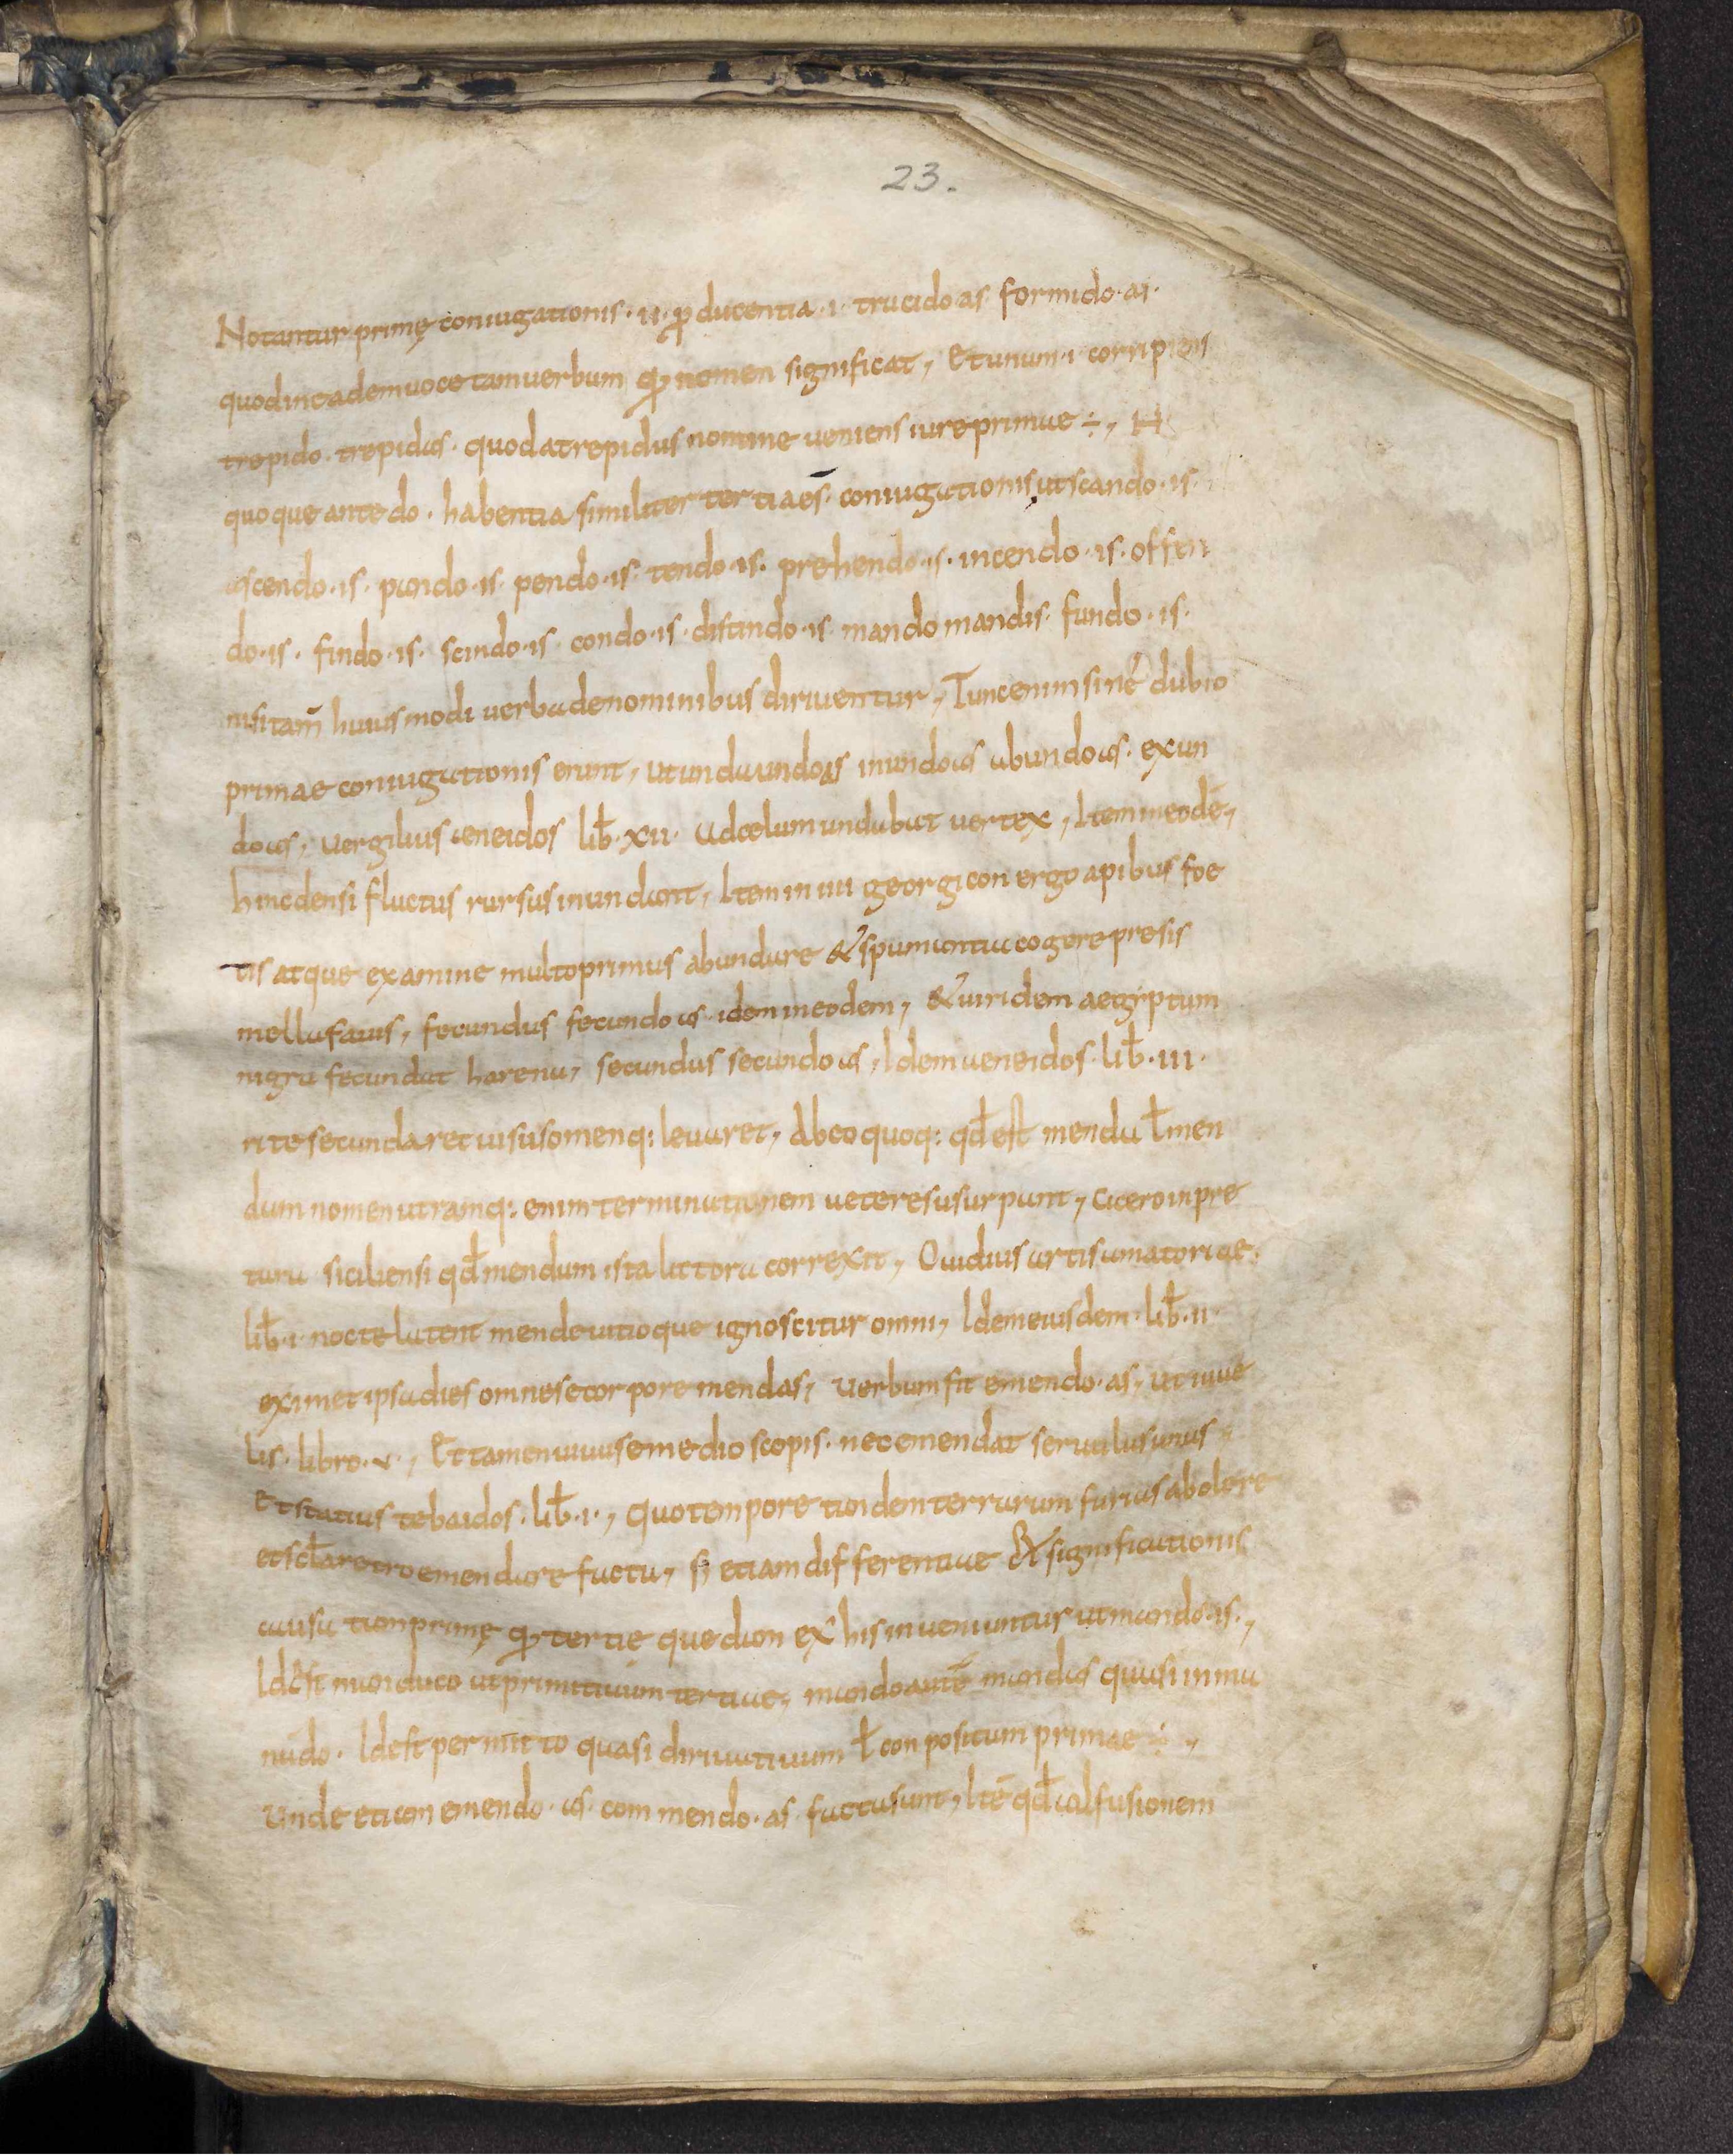 23.
Notantur primę coniugationis · ii · ꝓducentia · i · trucido as formido · as ·
quod in eadem uoce tam uerbum qua͂ nomen significat, Et unum · i · corripiens
trepido · trepidas · quod a trepidus nomine ueniens iure primae ÷, H
quoque ante do · habentia similiter tertiae s̄ · coniugationis, ut scando · is ·
ascendo · is · pando · is · pendo · is · tendo · is · prehendo · is · incendo · is · offen
do · is · findo · is · scindo · is · condo · is · distindo · is · mando mandis · fundo · is ·
nisi tam̄ huius modi uerba de nominibus diriuentur, Tunc enim sine dubio
primae coniugationis erunt, ut unda undo as inundo as abundo as · exun
do as, uergilius aeneidos lib̄ · xii · ad cęlum undabat uertex, Item in eodē,
hinc densi fluctus rursus inundant, Item in iiii georgicon ergo apibus foe
tis atque examine multo primus abundare & spumantia cogere presis
mella fauis, fecundus fecundo as idem in eodem, & uiridem aegiptum
nigra fecundat harena, secundus secundo as, Idem aeneidos · lib̄ · iii ·
rite secundaret uisus omenq: leuaret, Ab eo quoq: qđ est menda ł men
dum nomen utramq: enim terminationem ueteres usurpant, cicero in pre
tura siciliensi qđ mendum ista littora correxit, Ouidius artis amatoriae ·
lib̄ · i · nocte latent mende uitioque ignoscitur omni, Idem eiusdem · lib̄ · ii ·
eximet ipsa dies omnes e corpore mendas, uerbum fit emendo · as, ut iuue
lis · libro · v ·, Et tamen uiuus e medio scopis · nec emendat seruulus unus,
Et statius tebaidos · lib̄ · i ·, Quo tempore tandem terrarum furias abolere
et scła retro emendare facta, s; etiam differentiae & significationis
causa tam primę qua͂ tertię quedam ex his inueniuntur ut mando · is ·,
Id est manduco ut primitiuum tertiae, mando autē mandas quasi in ma
nū do · Id est permitto quasi diriuatiuum ł conpositum primae ÷,
unde etiam emendo · as · commendo · as · facta sunt, Itē qđ ad fusionem